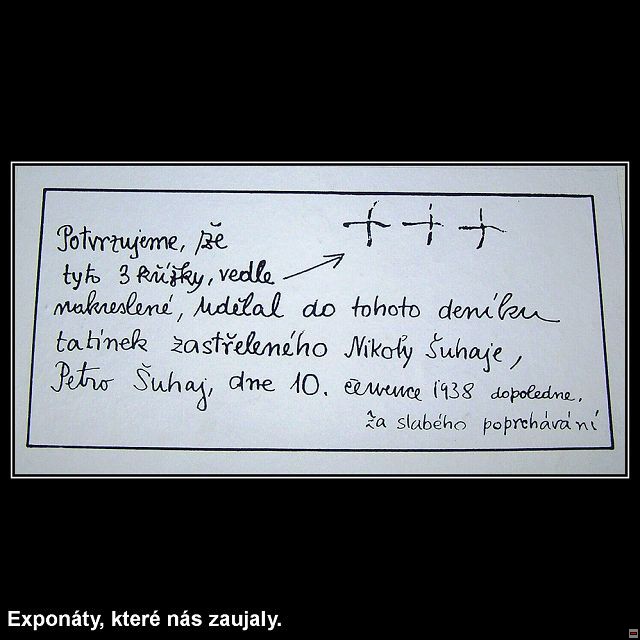 Potvrzujeme, že
tyto 3 křížky, vedle
nakreslené, udělal do tohoto deníku
tatínek zastřeleného Nikoly Šuhaje,
Petro Šuhaj, dne 10. července 1938 dopoledne,
za slabého poprchávání
Exponáty, které nás zaujaly.